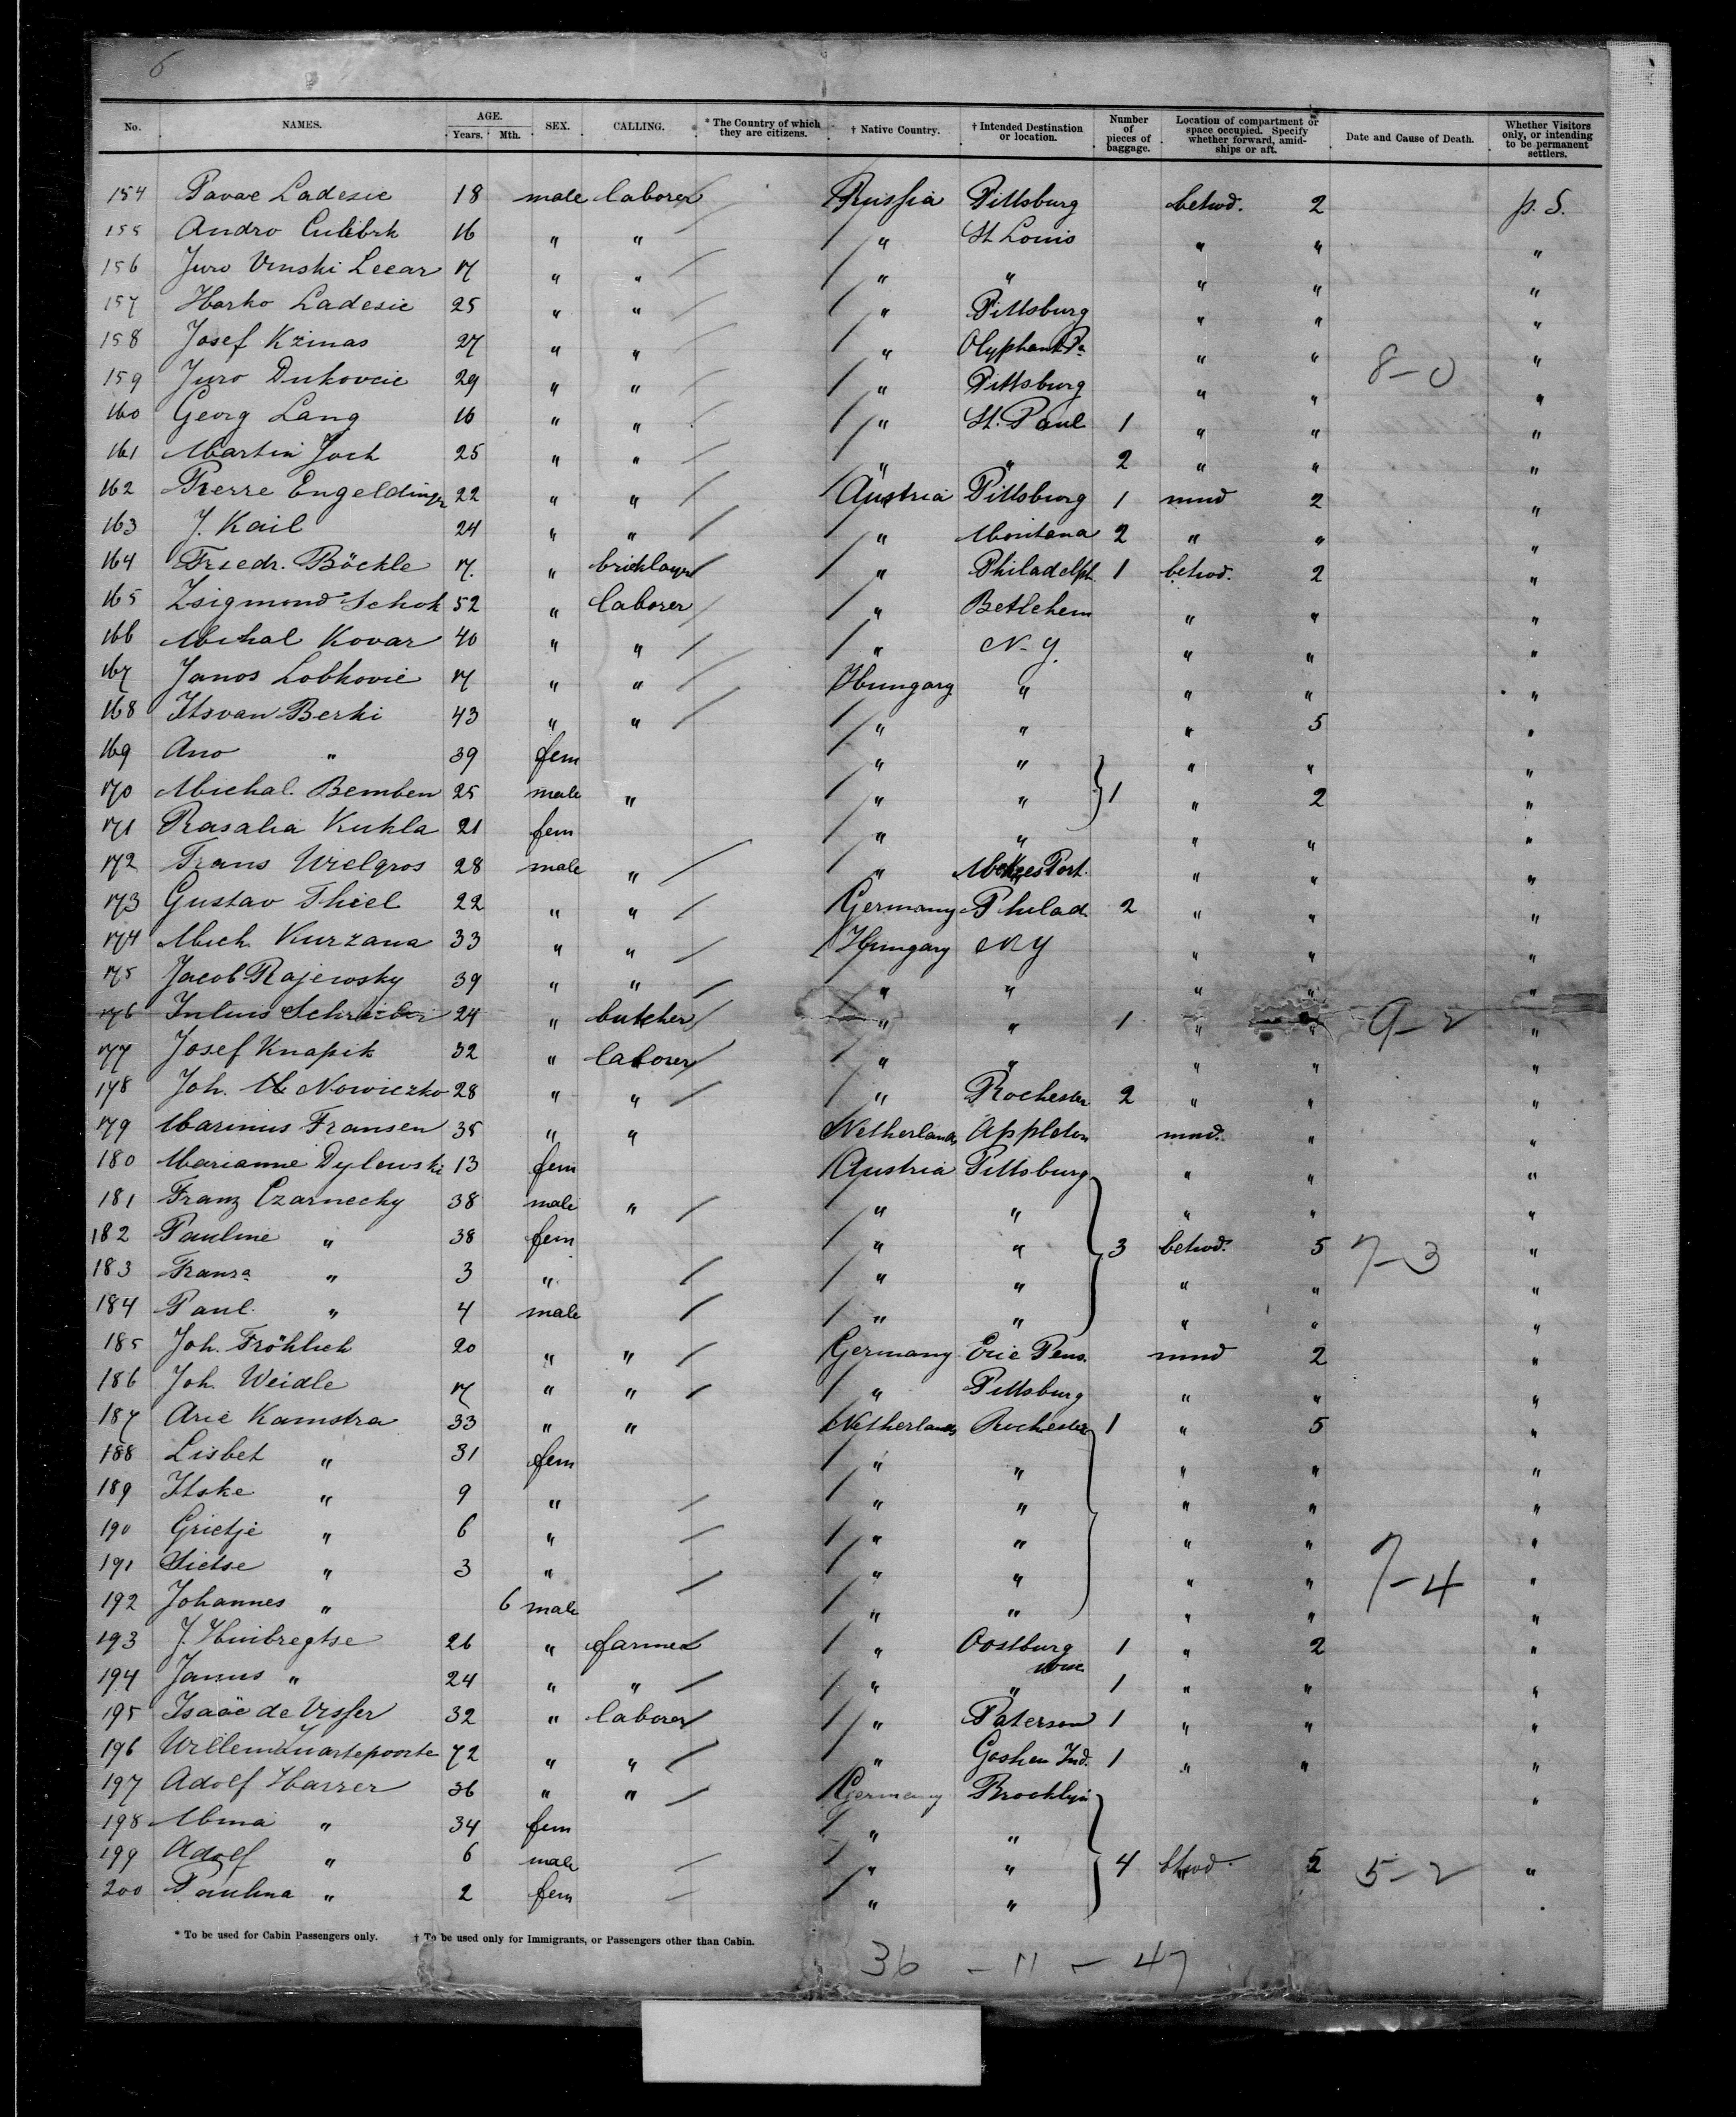 6
No. NAMES. AGE. Years. Mth. SEX. CALLING. * The Country of which they are citizens. † Native Country. † Intended Destination or location. Number of pieces of baggage. Location of compartment or space occupied. Specify whether forward, amidships or aft. Date and Cause of Death. Whether Visitors only, or intending to be permanent settlers.
154 Pavae Ladesic 18 male laborer Russia Pittsburg betwd. 2 p. S.
155 Andro Culibrk 16 " " " St Louis " " "
156 Juro Vinski Lecar 17 " " " " " " "
157 Harko Ladesic 25 " " " Pittsburg " " "
158 Josef Kzimas 27 " " " Olyphant Pa " " 8-0 "
159 Juro Dukovcic 29 " " " Pittsburg " " "
160 Georg Lang 16 " " " St. Paul 1 " " "
161 Martin Joch 25 " " " " 2 " " "
162 Pierre Engeldinger 22 " " Austria Pittsburg 1 mnd 2 "
163 J. Kail 24 " " " Montana 2 " " "
164 Friedr. Böckle 17. " bricklayer " Philadelph. 1 betwd. 2 "
165 Zsigmond Schok 52 " laborer " Betlehem " " "
166 Michal Kovar 40 " " " N-Y. " " "
167 Janos Lobkovic 17 " " Hungary " " " "
168 Itsvan Berki 43 " " " " " 5 "
169 Ano " 39 fem " " " " "
170 Michal. Bemben 25 male " " " 1 " 2 "
171 Rasalia Kukla 21 fem " " " " "
172 Frans Wielgros 28 male " " McKees Port. " " "
173 Gustav Thiel 22 " " Germany Philad. 2 " " "
174 Mich. Kurzana 33 " " Hungary N Y " " "
175 Jacob Rajewsky 39 " " " " " " "
176 Julius Schreiber 24 " butcher " " 1 " " 9-2 "
177 Josef Knapik 32 " laborer " " " " "
178 Joh. Nowiczko 28 " " " Rochester 2 " " "
179 Marinus Fransen 35 " " Netherlands Appleton mnd. " "
180 Marianne Dylewski 13 fem Austria Pittsburg " " "
181 Franz Czarnecky 38 male " " " " " "
182 Pauline " 38 fem " " 3 betwd. 5 7-3 "
183 Fransa " 3 " " " " " "
184 Paul. " 4 male " " " " "
185 Joh. Fröhlich 20 " " Germany Erie Pens. mnd 2 "
186 Joh. Weidle 17 " " " Pittsburg " " "
187 Arie Kamstra 33 " " Netherlands Rochester 1 " 5 "
188 Lisbet " 31 fem " " " " "
189 Itske " 9 " " " " " "
190 Grietje " 6 " " " " " "
191 Sietse " 3 " " " " " 7-4 "
192 Johannes " 6 male " " " " "
193 J. Huibregtse 26 " farmer " Oostburg 1 " 2 "
wisc.
194 Janus " 24 " " " " 1 " " "
195 Isaäc de Visser 32 " laborer " Paterson 1 " " "
196 Willem Zwartepoorte 72 " " " Goshen Ind. 1 " " "
197 Adolf Harrer 36 " " Germany Brooklyn "
198 Mina " 34 fem " "
199 Adolf " 6 male " " 4 btwd. 5 5-2 "
200 Paulina " 2 fem " "
* To be used for Cabin Passengers only. † To be used only for Immigrants, or Passengers other than Cabin.
36 - 11 - 47